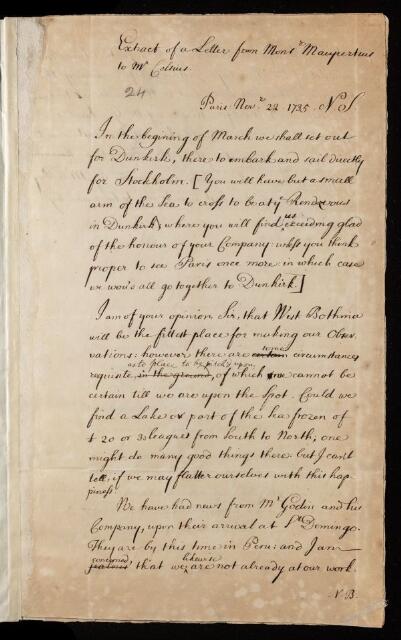 Extract of a Letter from Monsr Maupertuis
to Mr Celsius.
24
Paris Novr 22 1735 N S
In the begining of March we shall set out
for Dunkirk, there to embark and sail directly
for Stockholm. [You will have but a small
arm of the Sea to cross to be at ye Rendevous
in Dunkirk, where you will find us exceeding glad
of the honour of your Company unless you think
proper to see Paris once more in which case
we wou'd all go together to Dunkirk.]
I am of your opinion, Sir, that West Bothnia
will be the fittest place for making our Obser
vations: however there are certain some circumstances
as to place to be pitch'd upon
requisite, in the ground, of which we cannot be
certain till we are upon the Spot. Could we
find a Lake or part of the Sea frozen of
20 or 30 leagues from South to North, one
might do many good things there but I can't
tell, if we may flatter ourselves with this hap
piness.
We have had news from Mr Godin and his
Company, upon their arrival at St Domingo.
They are by this time in Peru: and I am
concerned likewise
jealous that we are not already at our work.
N.B.